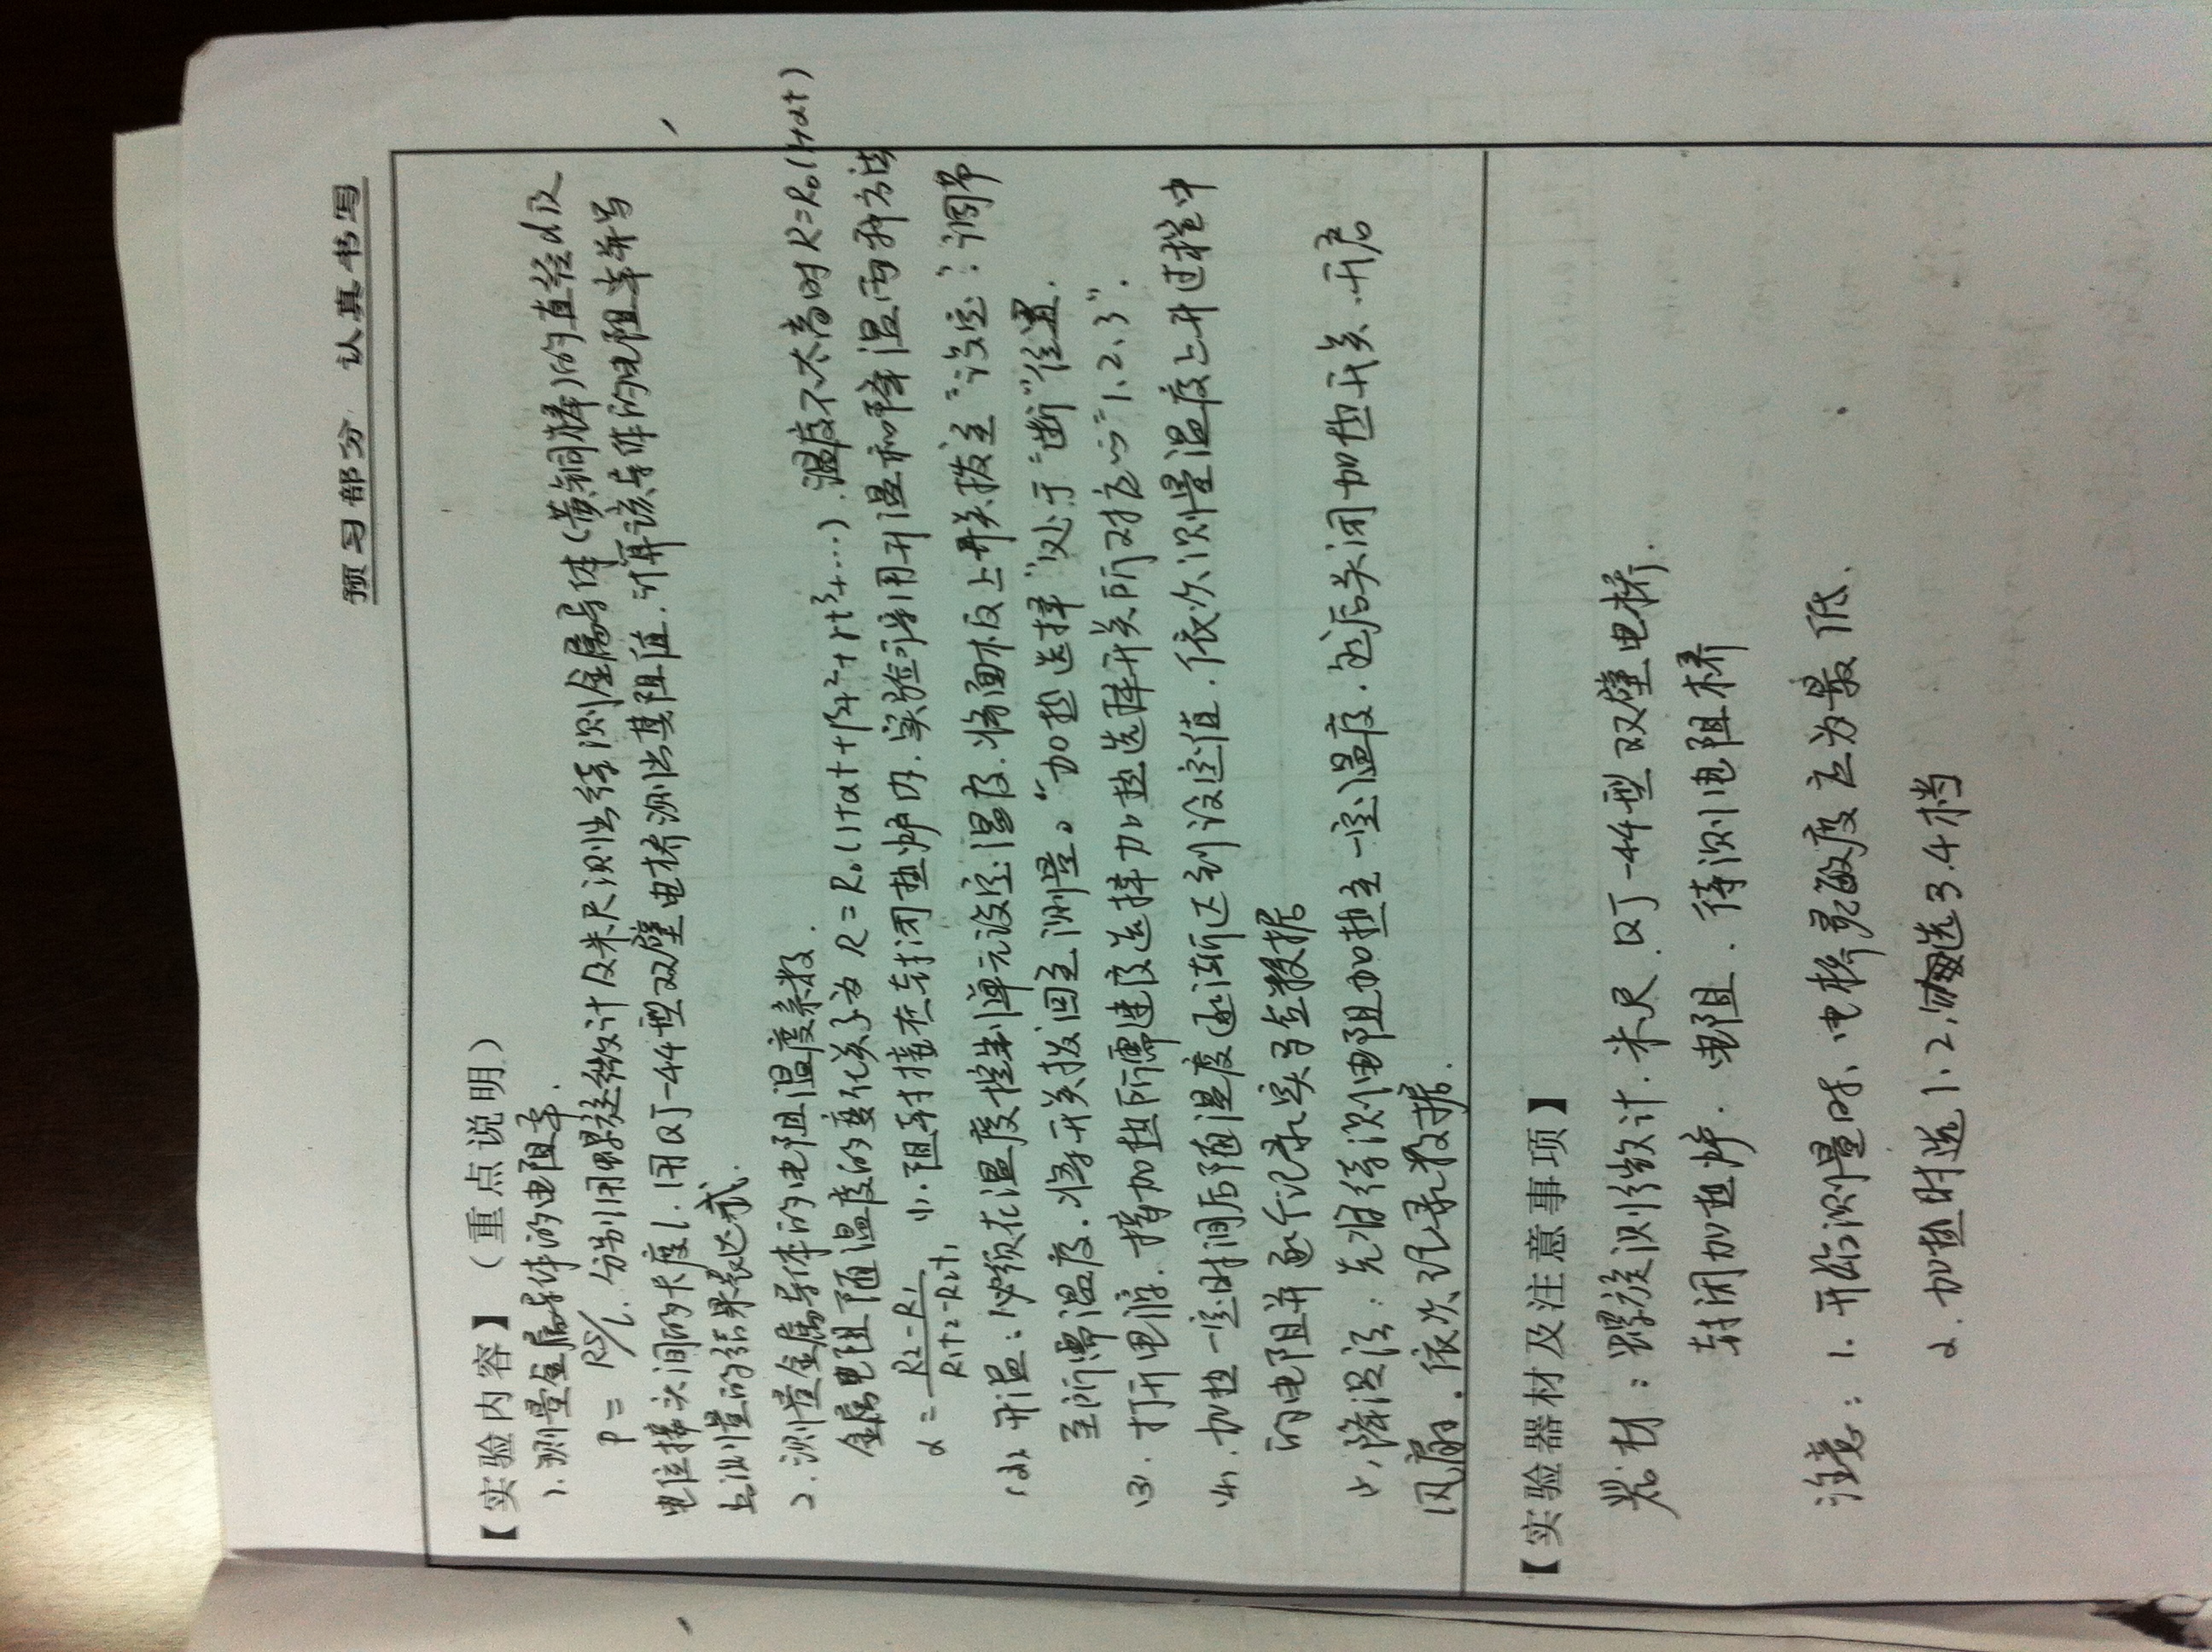 预习部分 认真书写
【实验内容】（重点说明）
1. 测量金属导体的电阻率.
ρ = RS/l. 分别用螺旋微计及米尺测出待测金属导体(黄铜棒)的直径d及
电位接头间的长度l. 用QJ-44型双臂电桥测出其阻值. 计算该导体的电阻率并写
出测量的结果表达式.
2. 测量金属导体的电阻温度系数.
金属电阻随温度的变化关系为 R=R₀(1+αt+βt²+γt³+…). 温度不太高时 R=R₀(1+αt)
α = (R₂-R₁)/(R₁t₂-R₂t₁) (1). 阻封接在封闭热炉内. 实验可采用升温和降温两种方法
(2). 升温: 必须在温度控制单元设定温度. 将面板上开关拨至"设定". 调节
至所需温度. 将开关拨回至测量。"加热选择"处于"断"位置.
(3). 打开电源. 按加热所需速度选择加热选择开关所对应的"1、2、3".
(4). 加热一定时间后随温度逐渐达到设定值. 依次测量温度上升过程中
的电阻并逐个记录实验数据
降温法: 先将待测电阻加热至一定温度. 然后关闭加热开关. 开启
风扇. 依次记录数据.
【实验器材及注意事项】
器材: 螺旋测微计. 米尺. QJ-44型双臂电桥.
封闭加热炉. 电阻. 待测电阻桥
注意: 1. 开始测量时、电桥灵敏度应为最低.
2. 加热时选1、2, 勿选3.4档